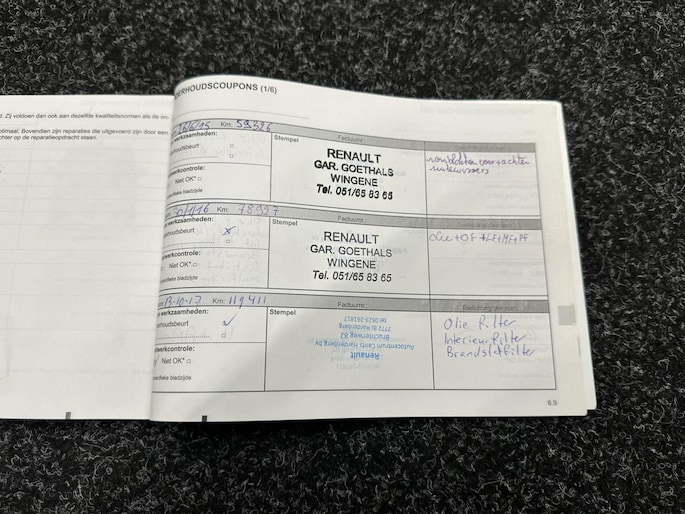 d. Zij voldoen dan ook aan dezelfde kwaliteitsnormen als de on-
ptimaal. Bovendien zijn reparaties die uitgevoerd zijn door een
chter op de reparatieopdracht staan.
ERHOUDSCOUPONS (1/6)
26/6/15 Km: 59326
werkzaamheden:
rhoudsbeurt
werkcontrole:
Niet OK*
specifieke bladzijde
Stempel
Factuurnr.
RENAULT
GAR. GOETHALS
WINGENE
Tel. 051/65 83 65
Km: 78997
werkzaamheden:
rhoudsbeurt X
werkcontrole:
Niet OK*
specifieke bladzijde
Stempel
Factuurnr.
RENAULT
GAR. GOETHALS
WINGENE
Tel. 051/65 83 65
olie + OF + LF + MF + PF
13-10-17 Km: 119411
werkzaamheden:
rhoudsbeurt
werkcontrole:
Niet OK*
specifieke bladzijde
Stempel
Factuurnr.
Renault
Autocentrum Cents Hardenberg bv
Bruchterweg 82
7772 BJ Hardenberg
tel 0523-261837
Olie filter
Interieur filter
Brandstoffilter
6.9